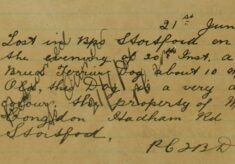 21st Jun
Lost in Bps Stortford on
the evening of 20th Inst. a
Terrier Dog about 10 m
Old, the Dog is a very d
colour, the property of M
Longdon Hadham Rd
Stortford.